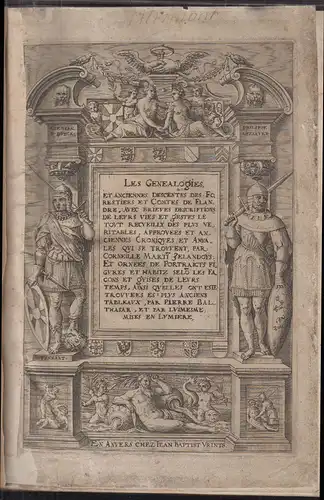 LES GENEALOGIES,
ET ANCIENNES DESCENTES DES FO-
RESTIERS ET COMTES DE FLAN-
DRE, AVEC BRIEFVES DESCRIPTIONS
DE LEVRS VIES ET GESTES LE
TOVT RECVEILLY DES PLVS VE-
RITABLES, APPROVEES ET AN-
CIENNES CRONIQVES ET ANNA-
LES QVI SE TROVVENT, PAR
CORNEILLE MARTIN ZELANDOIS.
ET ORNEES DE PORTRAICTS FI-
GVRES ET HABITZ SELO LES FA-
CONS ET GVISES DE LEVRS
TEMPS, AINSI QVELLES ONT ESTE
TROVVEES ES PLVS ANCIENS
TABLEAVX, PAR PIERRE BAL-
THASAR, ET PAR LVIMESME
MISES EN LVMIERE.
EN ANVERS CHEZ IEAN BAPTIST VRINTS.